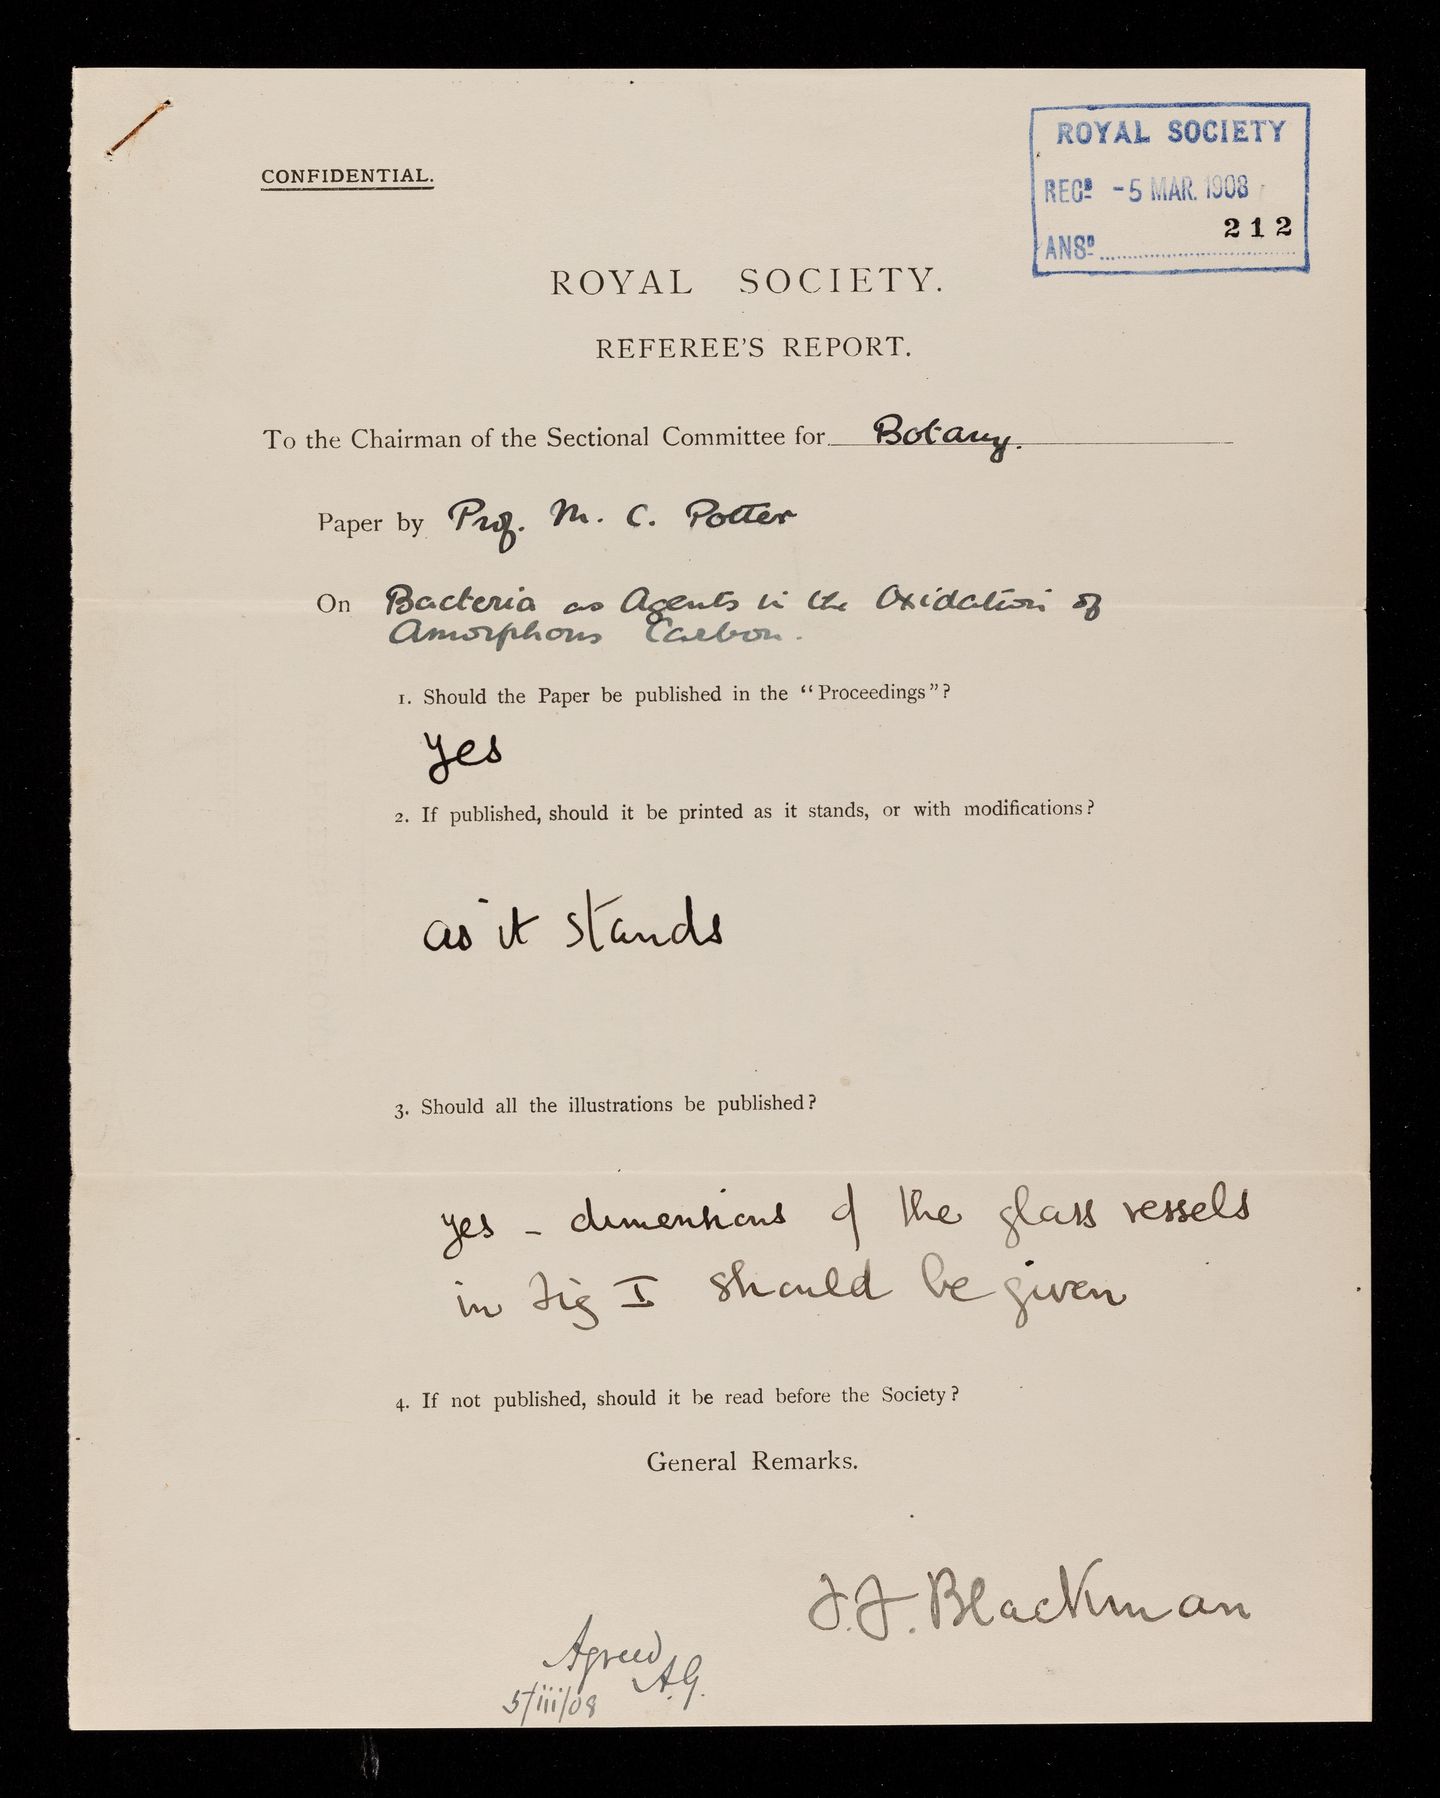 CONFIDENTIAL.
ROYAL SOCIETY
RECD -5 MAR. 1908
212
ANSD
ROYAL SOCIETY.
REFEREE'S REPORT.
To the Chairman of the Sectional Committee for Botany.
Paper by Prof. M. C. Potter
On Bacteria as Agents in the Oxidation of
Amorphous Carbon.
1. Should the Paper be published in the "Proceedings"?
yes
2. If published, should it be printed as it stands, or with modifications?
as it stands
3. Should all the illustrations be published?
yes - dimensions of the glass vessels
in Fig I should be given
4. If not published, should it be read before the Society?
General Remarks.
F.F. Blackman
Agreed
A.G.
5/iii/08